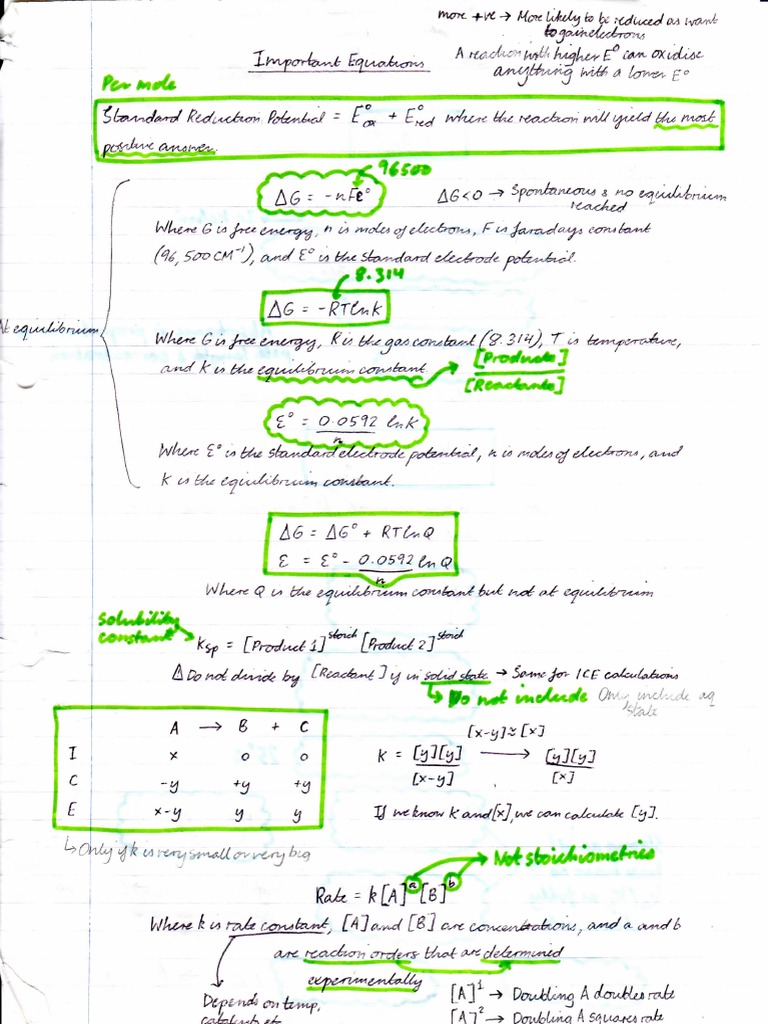 more +ve → More likely to be reduced as want
to gain electrons
Important Equations
A reaction with higher E° can oxidise
anything with a lower E°
Per mole
Standard Reduction Potential = E°ox + E°red where the reaction will yield the most
positive answer.
96500
ΔG = -nFε°
ΔG<0 → Spontaneous & no equilibrium
reached
Where G is free energy, n is moles of electrons, F is faradays constant
(96,500 CM⁻¹), and ε° is the standard electrode potential.
8.314
ΔG = -RTlnK
At equilibrium
Where G is free energy, R is the gas constant (8.314), T is temperature,
and K is the equilibrium constant.
[Products]
[Reactants]
ε° = 0.0592 lnK
n
Where ε° is the standard electrode potential, n is moles of electrons, and
K is the equilibrium constant.
ΔG = ΔG° + RTlnQ
ε = ε° - 0.0592 lnQ
n
Where Q is the equilibrium constant but not at equilibrium
Solubility
constant
Ksp = [Product 1]^stoich [Product 2]^stoich
Δ Do not divide by [Reactant] if in solid state → Same for ICE calculations
↳ Do not include Only include aq
state
A → B + C
I x o o
C -y +y +y
E x-y y y
[x-y]≈[x]
K = [y][y] → [y][y]
[x-y] [x]
If we know K and [x], we can calculate [y].
↳ Only if k is very small or very big
Not stoichiometries
Rate = k[A]^a [B]^b
Where k is rate constant, [A] and [B] are concentrations, and a and b
are reaction orders that are determined
experimentally
Depends on temp,
catalysts etc
[A]¹ → Doubling A doubles rate
[A]² → Doubling A squares rate